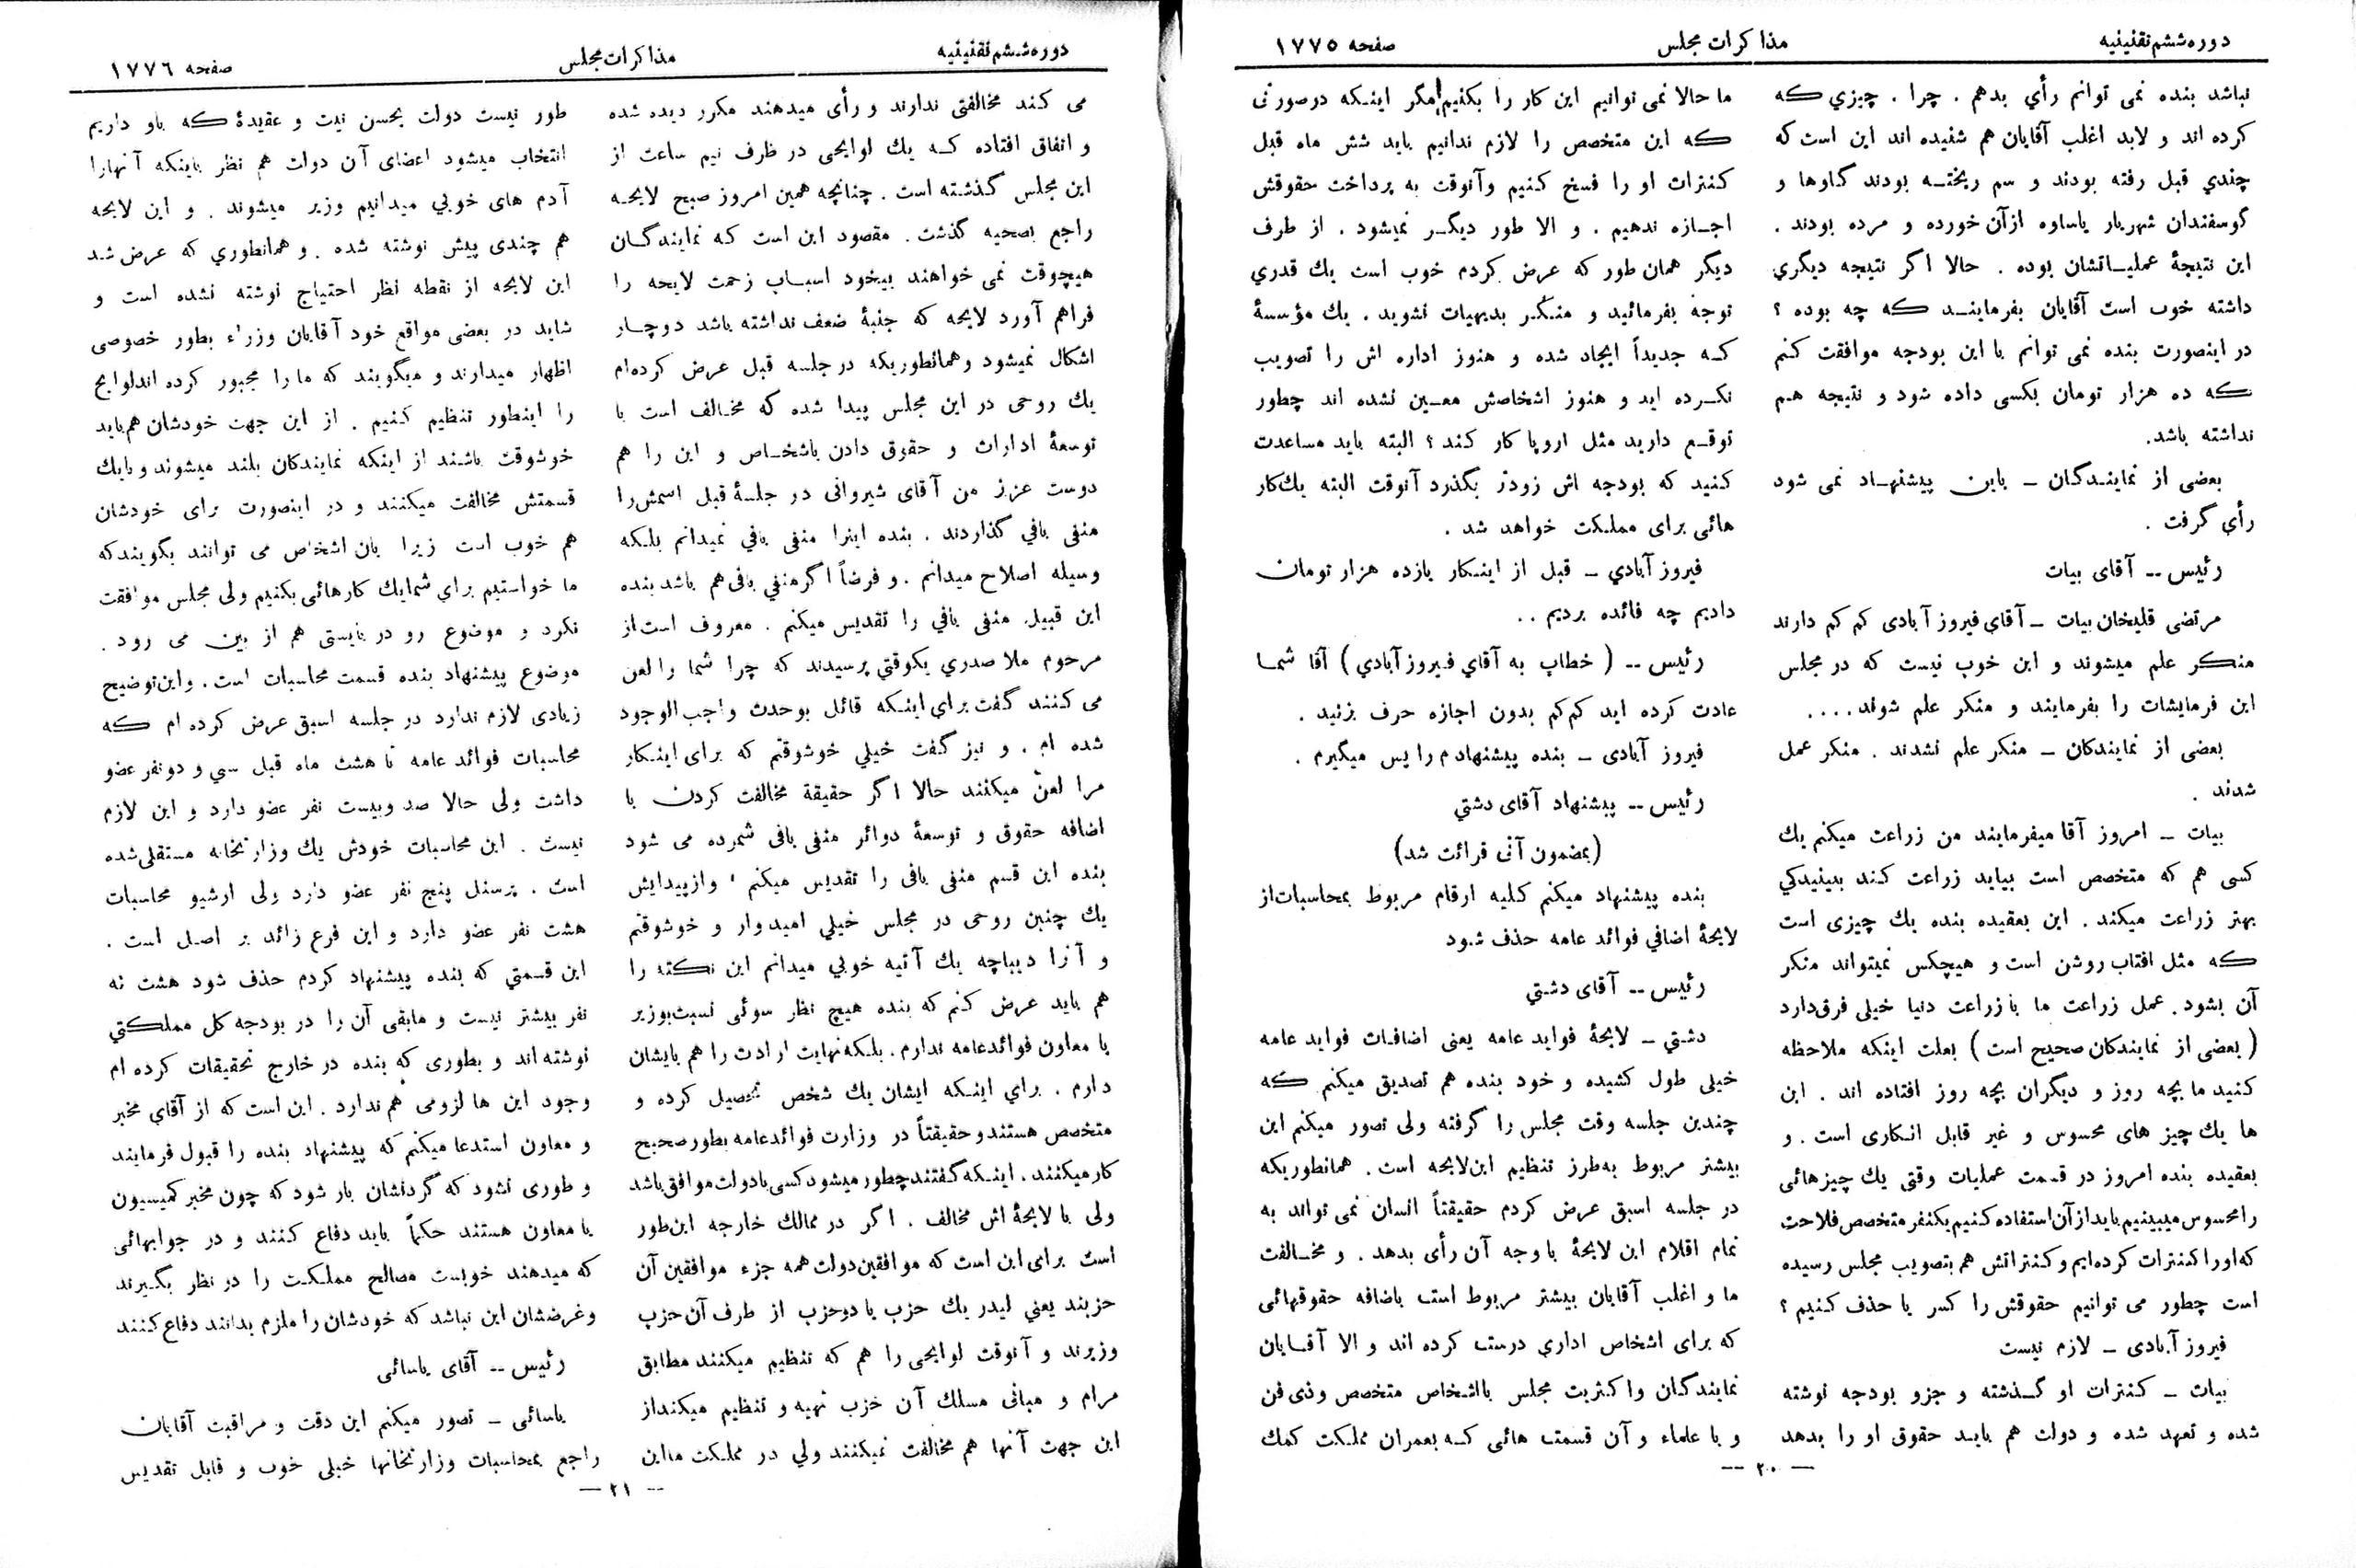 دوره ششم تقنینیه
مذاکرات مجلس
صفحه ۱۷۷۵
نباشد بنده نمی توانم رأی بدهم . چرا . چیزی که
کرده اند و لابد اغلب آقایان هم شنیده اند این است که
چندی قبل رفته بودند و سم ریخته بودند گاوها و
گوسفندان شهریار یاساوه ازآن خورده و مرده بودند .
این نتیجهٔ عملیاتشان بوده . حالا اگر نتیجه دیگری
داشته خوب است آقایان بفرمایند که چه بوده ؟
در اینصورت بنده نمی توانم با این بودجه موافقت کنم
که ده هزار تومان بکسی داده شود و نتیجه هم
نداشته باشد.
بعضی از نمایندگان ـ باین پیشنهاد نمی شود
رأی گرفت .
رئیس -- آقای بیات
مرتضی قلیخان بیات ـ آقای فیروز آبادی کم کم دارند
منکر علم میشوند و این خوب نیست که در مجلس
این فرمایشات را بفرمایند و منکر علم شوند....
بعضی از نمایندکان ـ منکر علم نشدند . منکر عمل
شدند .
بیات ـ امروز آقا میفرمایند من زراعت میکنم یك
کسی هم که متخصص است بیاید زراعت کند ببینیدکی
بهتر زراعت میکند . این بعقیده بنده یك چیزی است
که مثل افتاب روشن است و هیچکس نمیتواند منکر
آن بشود . عمل زراعت ما با زراعت دنیا خیلی فرق دارد
( بعضی از نمایندکان صحیح است ) بعلت اینکه ملاحظه
کنید ما بچه روز و دیگران بچه روز افتاده اند . این
ها یك چیز های محسوس و غیر قابل انکاری است . و
بعقیده بنده امروز در قسمت عملیات وقتی یك چیزهائی
را محسوس میبینیم باید از آن استفاده کنیم یکنفر متخصص فلاحت
که اورا کنترات کرده ایم و کنتراتش هم بتصویب مجلس رسیده
است چطور می توانیم حقوقش را کسر یا حذف کنیم ؟
فیروز آبادی ـ لازم نیست
بیات ـ کنترات او گذشته و جزو بودجه نوشته
شده و تعهد شده و دولت هم باید حقوق او را بدهد
ما حالا نمی توانیم این کار را بکنیم مگر اینکه درصورتی
که این متخصص را لازم ندانیم باید شش ماه قبل
کنترات او را فسخ کنیم وآنوقت به پرداخت حقوقش
اجازه ندهیم . و الا طور دیگر نمیشود . از طرف
دیگر همان طور که عرض کردم خوب است یك قدری
توجه بفرمائید و منکر بدیهیات نشوید . یك مؤسسهٔ
که جدیداً ایجاد شده و هنوز اداره اش را تصویب
نکرده اید و هنوز اشخاصش معین نشده اند چطور
توقع دارید مثل اروپا کار کند ؟ البته باید مساعدت
کنید که بودجه اش زودتر بگذرد آنوقت البته یك کار
هائی برای مملکت خواهد شد .
فیروز آبادی ـ قبل از اینکار یازده هزار تومان
دادیم چه فائده بردیم . .
رئیس -- ( خطاب به آقای فیروز آبادی ) آقا شما
عادت کرده اید کم کم بدون اجازه حرف بزنید .
فیروز آبادی ـ بنده پیشنهادم را پس میگیرم .
رئیس -- پیشنهاد آقای دشتی
(بمضمون آتی قرائت شد)
بنده پیشنهاد میکنم کلیه ارقام مربوط بمحاسبات از
لایحهٔ اضافی فوائد عامه حذف شود
رئیس -- آقای دشتی
دشتی ـ لایحهٔ فواید عامه یعنی اضافات فواید عامه
خیلی طول کشیده و خود بنده هم تصدیق میکنم که
چندین جلسه وقت مجلس را گرفته ولی تصور میکنم این
بیشتر مربوط به طرز تنظیم این لایحه است . همانطوریکه
در جلسه اسبق عرض کردم حقیقتاً انسان نمی تواند به
تمام اقلام این لایحهٔ با وجه آن رأی بدهد . و مخالفت
ما و اغلب آقایان بیشتر مربوط است باضافه حقوقهائی
که برای اشخاص اداری درست کرده اند و الا آقایان
نمایندگان واکثریت مجلس بااشخاص متخصص وذی فن
و با علماء و آن قسمت هائی که بعمران مملکت کمك
— ۲۰ —
دوره ششم تقنینیه
مذاکرات مجلس
صفحه ۱۷۷۶
می کند مخالفتی ندارند و رأی میدهند مکرر دیده شده
و اتفاق افتاده که یك لوایحی در ظرف نیم ساعت از
این مجلس گذشته است . چنانچه همین امروز صبح لایحه
راجع بصحیه گذشت . مقصود این است که نمایندگان
هیچوقت نمی خواهند بیخود اسباب زحمت لایحه را
فراهم آورد لایحه که جنبهٔ ضعف نداشته باشد دوچار
اشکال نمیشود وهمانطوریکه در جلسه قبل عرض کرده ام
یك روحی در این مجلس پیدا شده که مخالف است با
توسعهٔ ادارات و حقوق دادن باشخاص و این را هم
دوست عزیز من آقای شیروانی در جلسهٔ قبل اسمش را
منفی بافی گذاردند . بنده اینرا منفی بافی نمیدانم بلکه
وسیله اصلاح میدانم . و فرضاً اگر منفی بافی هم باشد بنده
این قبیل منفی بافی را تقدیس میکنم . معروف است از
مرحوم ملا صدری یکوقتی پرسیدند که چرا شما را لعن
می کنند گفت برای اینکه قائل بوحدت واجب الوجود
شده ام . و نیز گفت خیلی خوشوقتم که برای اینکار
مرا لعن میکنند حالا اگر حقیقة مخالفت کردن با
اضافه حقوق و توسعهٔ دوائر منفی بافی شمرده می شود
بنده این قسم منفی بافی را تقدیس میکنم ، وازپیدایش
یك چنین روحی در مجلس خیلی امیدوار و خوشوقتم
و آنرا دیباچه یك آتیه خوبی میدانم این نکته را
هم باید عرض کنم که بنده هیچ نظر سوئی نسبت بوزیر
یا معاون فوائدعامه ندارم . بلکه نهایت ارادت را هم بایشان
دارم . برای اینکه ایشان یك شخص تحصیل کرده و
متخصص هستند و حقیقتاً در وزارت فوائدعامه بطور صحیح
کار میکنند . اینکه گفتند چطور میشود کسی با دولت موافق باشد
ولی با لایحهٔ اش مخالف . اگر در ممالك خارجه این طور
است برای این است که موافقین دولت همه جزء موافقین آن
حزبند یعنی لیدر یك حزب یا دوحزب از طرف آن حزب
وزیرند و آنوقت لوایحی را هم که تنظیم میکنند مطابق
مرام و مبانی مسلك آن حزب تهیه و تنظیم میکنداز
این جهت آنها هم مخالفت نمیکنند ولی در مملکت مااین
طور نیست دولت بحسن نیت و عقیدهٔ که باو داریم
انتخاب میشود اعضای آن دولت هم نظر باینکه آنهارا
آدم های خوبی میدانیم وزیر میشوند . و این لایحه
هم چندی پیش نوشته شده . و همانطوری که عرض شد
این لایحه از نقطه نظر احتیاج نوشته نشده است و
شاید در بعضی مواقع خود آقایان وزراء بطور خصوصی
اظهار میدارند و میگویند که ما را مجبور کرده اندلوایح
را اینطور تنظیم کنیم . از این جهت خودشان هم باید
خوشوقت باشند از اینکه نمایندکان بلند میشوند و بایك
قسمتش مخالفت میکنند و در اینصورت برای خودشان
هم خوب است زیرا بان اشخاص می توانند بگویندکه
ما خواستیم برای شما یك کارهائی بکنیم ولی مجلس موافقت
نکرد و موضوع رو در بایستی هم از بین می رود .
موضوع پیشنهاد بنده قسمت محاسبات است . واین توضیح
زیادی لازم ندارد در جلسه اسبق عرض کرده ام که
محاسبات فوائد عامه تا هشت ماه قبل سی و دو نفر عضو
داشت ولی حالا صد وبیست نفر عضو دارد و این لازم
نیست . این محاسبات خودش یك وزارتخانه مستقلی شده
است . پرسنل پنج نفر عضو دارد ولی ارشیو محاسبات
هشت نفر عضو دارد و این فرع زائد بر اصل است .
این قسمتی که بنده پیشنهاد کردم حذف شود هشت نه
نفر بیشتر نیست و مابقی آن را در بودجه کل مملکتی
نوشته اند و بطوری که بنده در خارج تحقیقات کرده ام
وجود این ها لزومی هم ندارد . این است که از آقای مخبر
و معاون استدعا میکنم که پیشنهاد بنده را قبول فرمایند
و طوری نشود که گردنشان بار شود که چون مخبر کمیسیون
یا معاون هستند حکماً باید دفاع کنند و در جوابهائی
که میدهند خوبست مصالح مملکت را در نظر بگیرند
وغرضشان این نباشد که خودشان را ملزم بدانند دفاع کنند
رئیس -- آقای یاسائی
یاسائی ـ تصور میکنم این دقت و مراقبت آقایان
راجع بمحاسبات وزارتخانها خیلی خوب و قابل تقدیس
— ۲۱ —